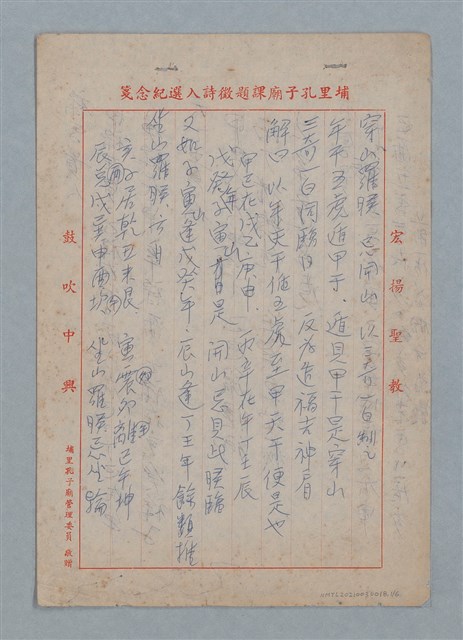 埔里孔子廟課題徵詩入選紀念箋
宏揚聖教
穿山羅睺忌開山以三奇一白制之
年干五虎遁甲干遁見甲干是穿山
三奇一白同臨日反為造福去神肩
解曰以年天干值五虎至甲天干便是也
甲己在戌乙庚申丙辛在午丁壬辰
戊癸年寅山是開山忌見此睺臨
又如子寅山逢戊癸年辰山逢丁壬年餘類推
坐山羅睺
亥子居乾丑未艮寅震卯離巳午坤
辰兌戌巽申酉坎坐山羅睺忌坐論
鼓吹中興
埔里孔子廟管理委員敬贈